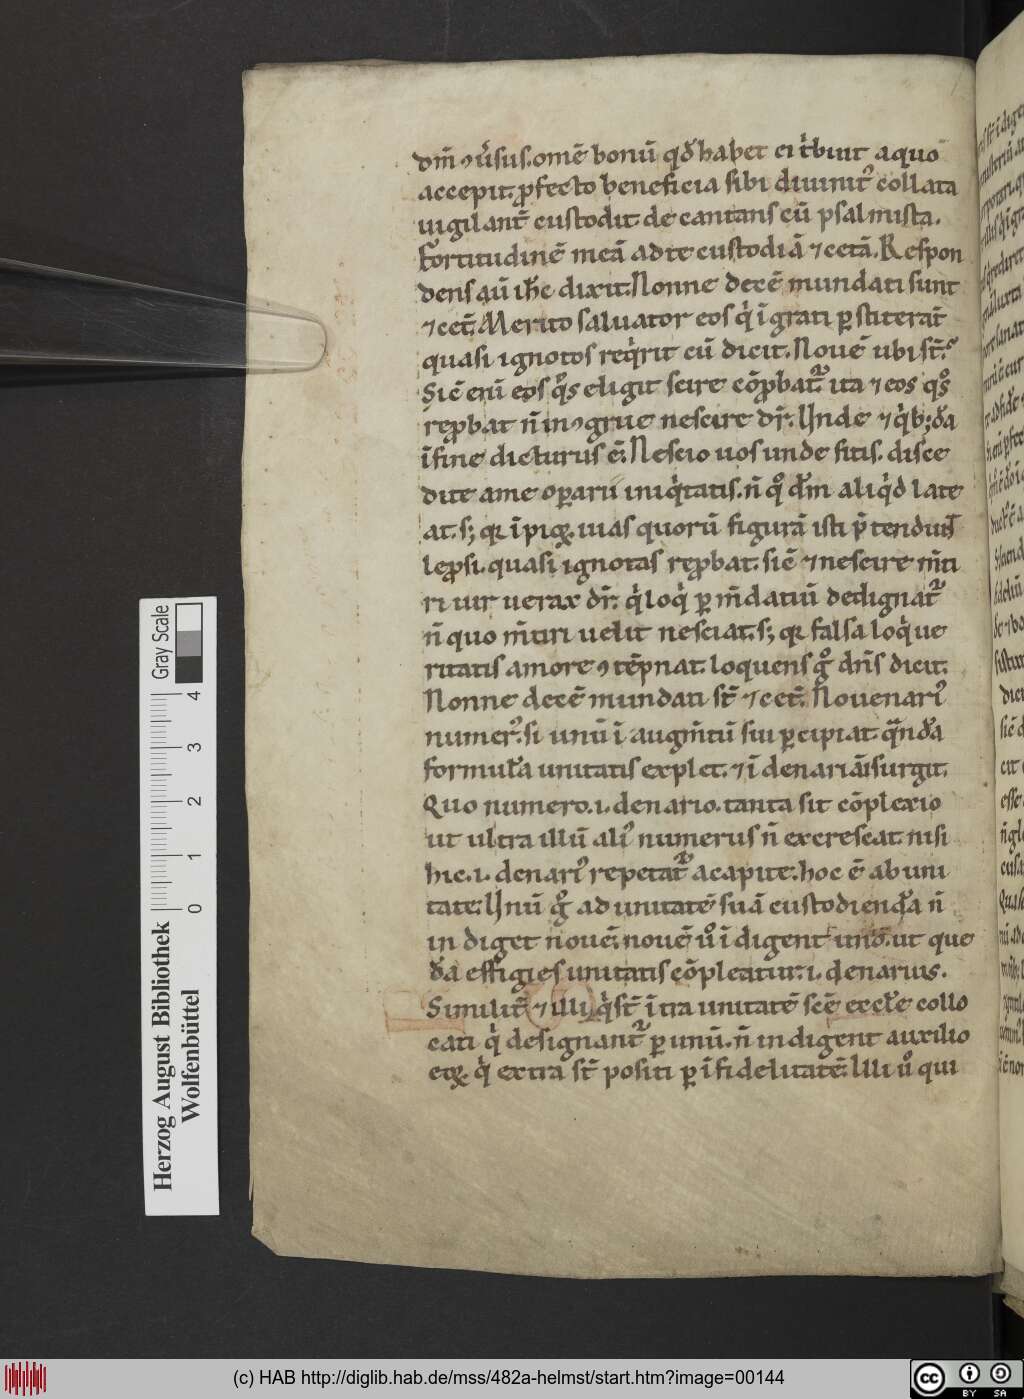 dn̄i ꝯūsus. omē bonū qđ habet ei t̓buit a quo
accepit. ꝓfecto beneficia sibi diuinit᷒ collata
uigilant̄ custodit. de cantans cū psalmista.
Fortitudinē meā ad te custodiā ⁊ cetā. Respon
dens aū ih̄c dixit. Nonne decē mundati sunt
⁊ cet̄. Merito saluator eos q̇ īgrati ꝑstiterāt
quasi ignotos req̇rit cū dicit. Nouē ubi st̄.
Sic̄ enī eos q̊s eligit scire cōꝓbat᷑. ita ⁊ eos q̊s
reꝓbat n̄ inꝯgrue nescire dr̄. Unde ⁊ q̇b; đa
ī fine dicturus ē. Nescio uos unde sitis. disce
dite a me oꝑarii iniq̇tatis. n̄ qͦ dm̄ aliq̇d late
at. s; qꝛ īpioꝝ uias quorū figurā isti p̄tendur̄
lep̄si. quasi ignotas reꝓbat. sic̄ ⁊ nescire m̄ti
ri uir uerax dr̄. q̇ loq̇ ꝑ m̄datiū dedignat᷑
n̄ quo m̄tiri uelit nesciat. s; qꝛ falsa loq̇ ue
ritatis amore ꝯtēpnat. loquens gͦ dn̄s dicit.
Nonne decē mundati st̄ ⁊ cet̄. Nouenari᷒
numer᷒. si unū ī augm̄tū sui ꝑcipiat. q̄nđa
formul̄a unitatis explet. ⁊ ī denariū īsurgit.
Quo numero .i. denario. tanta sit cōplexio
ut ultra illū ali᷒ numerus n̄ excrescat. nisi
hic .i. denari᷒ repetat᷑ a capite. hoc ē ab uni
tate. Unū gͦ ad unitatē suā custodiend̄a n̄
indiget nouē. nouē ūͦ īdigent uno. ut que
đa effigies unitatis cōpleatur .i. denarius.
Similit̄ ⁊ illi q̇ st̄ ītra unitatē scē eccl̄e collo
cati q̇ designant᷑ ꝑ unū. n̄ indigent auxilio
eoꝝ q̇ extra st̄ positi ꝑ īfidelitatē. Illi ūͦ qui
Gray Scale
0 1 2 3 4
Herzog August Bibliothek
Wolfenbüttel
(c) HAB http://diglib.hab.de/mss/482a-helmst/start.htm?image=00144
cc BY SA